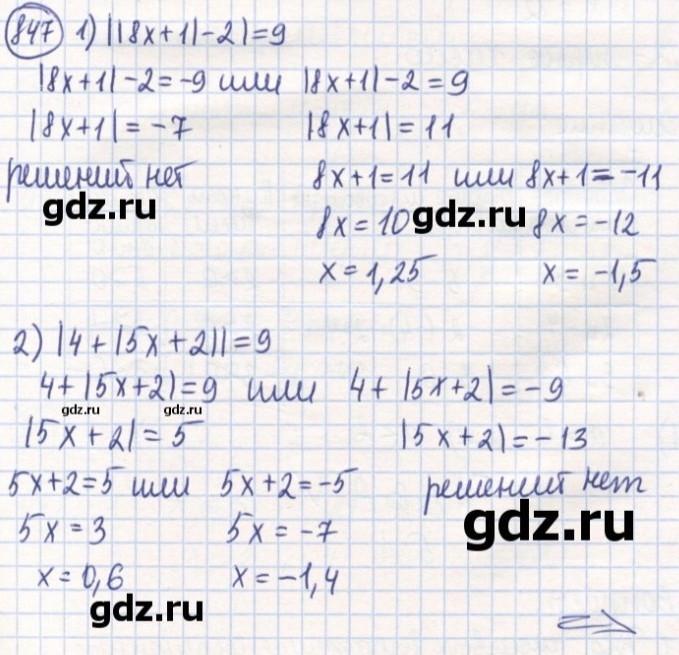 847 1) ||8x+1|-2|=9
|8x+1|-2=-9 или |8x+1|-2=9
|8x+1|=-7 |8x+1|=11
решений нет 8x+1=11 или 8x+1=-11
gdz.ru 8x=10 gdz.ru 8x=-12
x=1,25 x=-1,5
2) |4+|5x+2||=9
4+|5x+2|=9 или 4+|5x+2|=-9
gdz.ru gdz.ru
|5x+2|=5 |5x+2|=-13
5x+2=5 или 5x+2=-5 решений нет
5x=3 5x=-7 gdz.ru
x=0,6 x=-1,4
gdz.ru